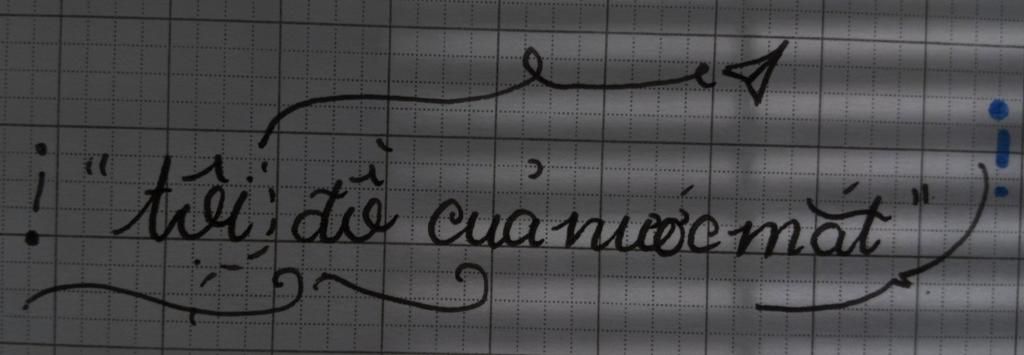 "tôi đồ của nước mắt"